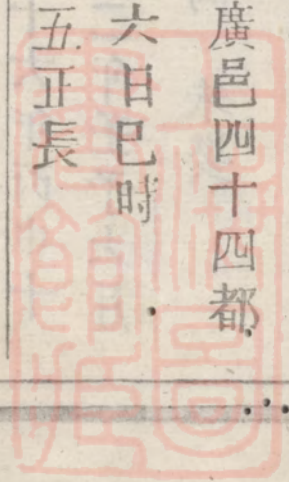 廣邑四十四都
六日巳時
五正長